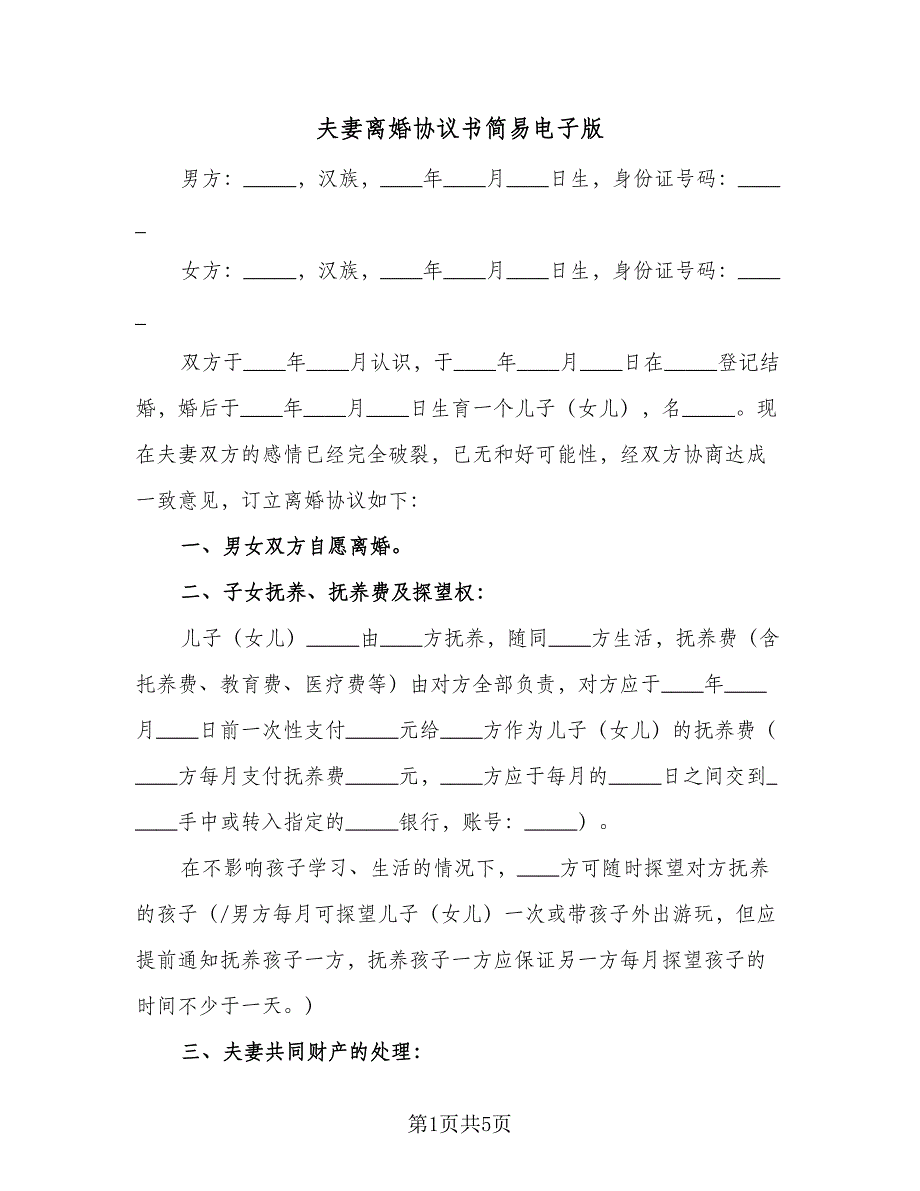 夫妻离婚协议书简易电子版
男方：_____，汉族，____年____月____日生，身份证号码：____
_
女方：_____，汉族，____年____月____日生，身份证号码：____
_
双方于____年____月认识，于____年____月____日在_____登记结
婚，婚后于____年____月____日生育一个儿子（女儿），名_____。现
在夫妻双方的感情已经完全破裂，已无和好可能性，经双方协商达成
一致意见，订立离婚协议如下：
一、男女双方自愿离婚。
二、子女抚养、抚养费及探望权：
儿子（女儿）_____由____方抚养，随同____方生活，抚养费（含
托养费、教育费、医疗费等）由对方全部负责，对方应于____年____
月____日前一次性支付_____元给____方作为儿子（女儿）的抚养费（
____方每月支付抚养费_____元，____方应于每月的_____日之间交到_
____手中或转入指定的_____银行，账号：_____）。
在不影响孩子学习、生活的情况下，____方可随时探望对方抚养
的孩子（/男方每月可探望儿子（女儿）一次或带孩子外出游玩，但应
提前通知抚养孩子一方，抚养孩子一方应保证另一方每月探望孩子的
时间不少于一天。）
三、夫妻共同财产的处理：
第1页共5页